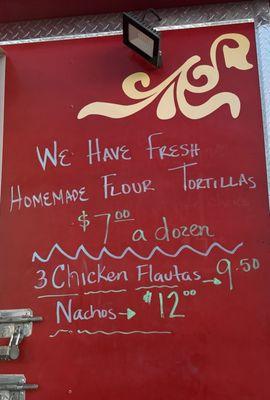 We Have Fresh
Homemade Flour Tortillas
$7.00 a dozen
3 Chicken Flautas → 9.50
Nachos → $12.00